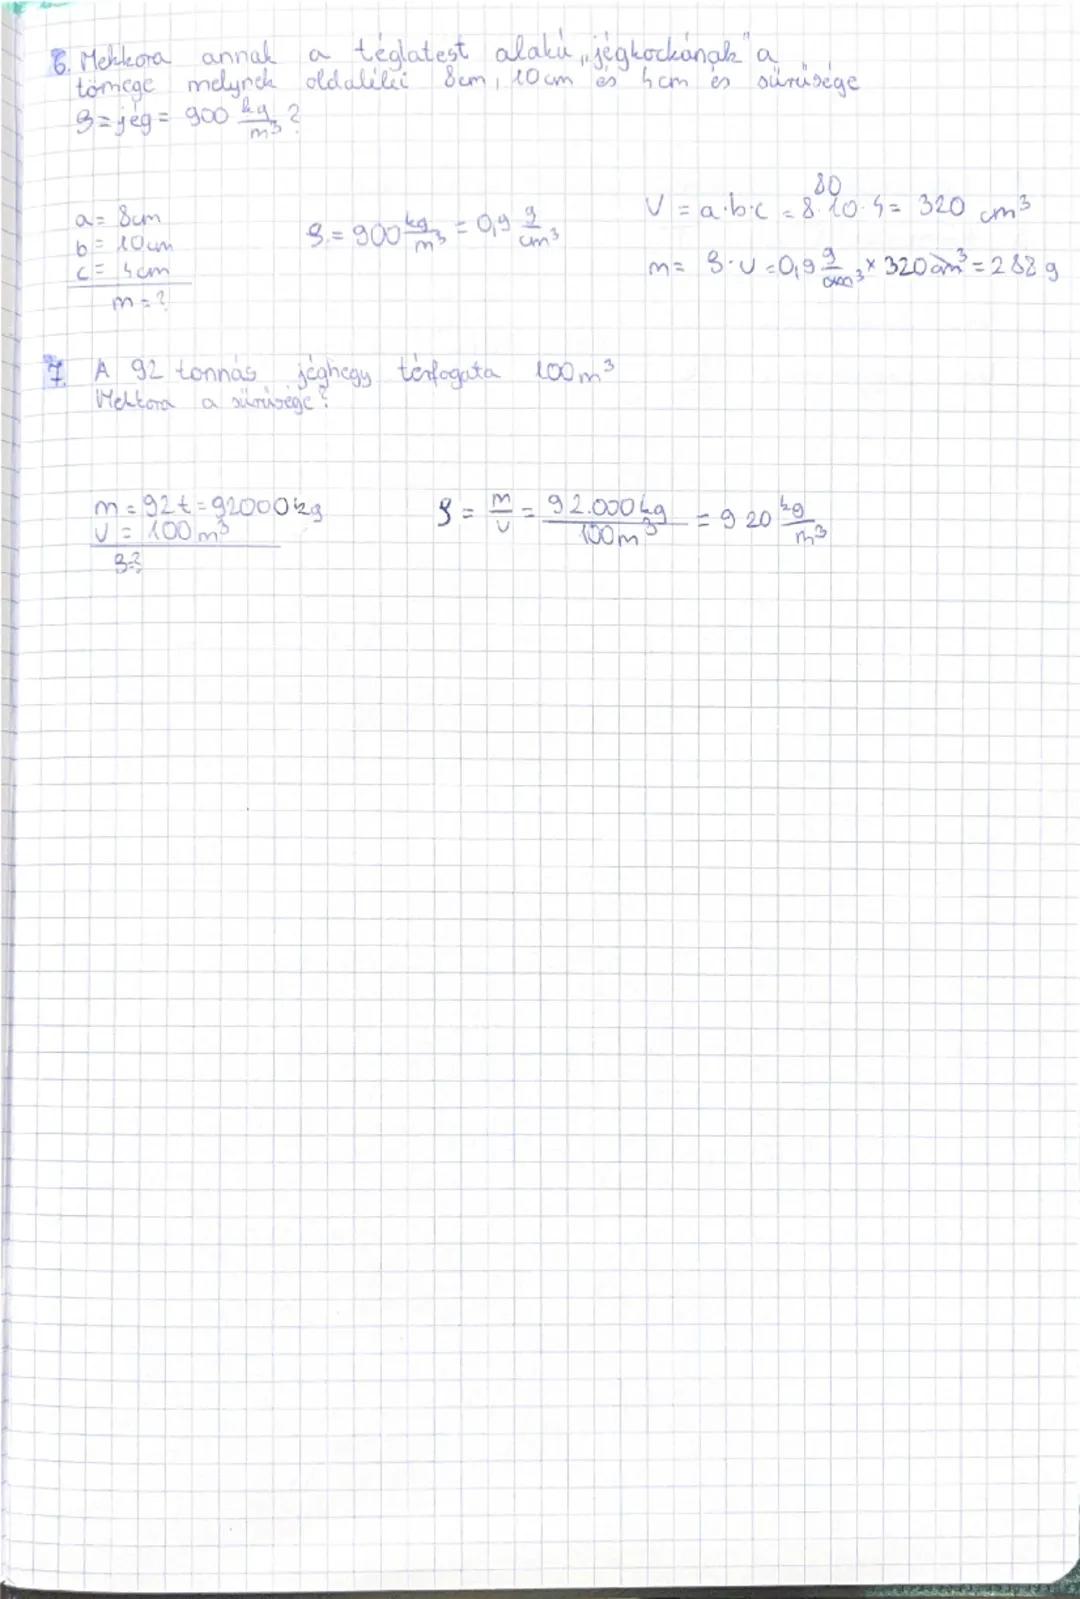 6. Mekkora annak a téglatest alakú „jégkockának" a
tömege melynek oldalélei 8cm, 10cm és 4cm és sűrűsége
ρ=jég= 900 kg/m³ ?
a= 8cm
b= 10cm
c= 4cm
m=?
ρ.= 900 kg/m³ = 0,9 g/cm³
80
V = a·b·c = 8·10·4= 320 cm³
m= ρ·V =0,9 g/cm³ × 320 cm³ = 288 g
7. A 92 tonnás jéghegy térfogata 100m³
Mekkora a sűrűsége?
m= 92t = 92000kg
V= 100m³
ρ=?
ρ = m/V = 92.000kg/100m³ = 920 kg/m³